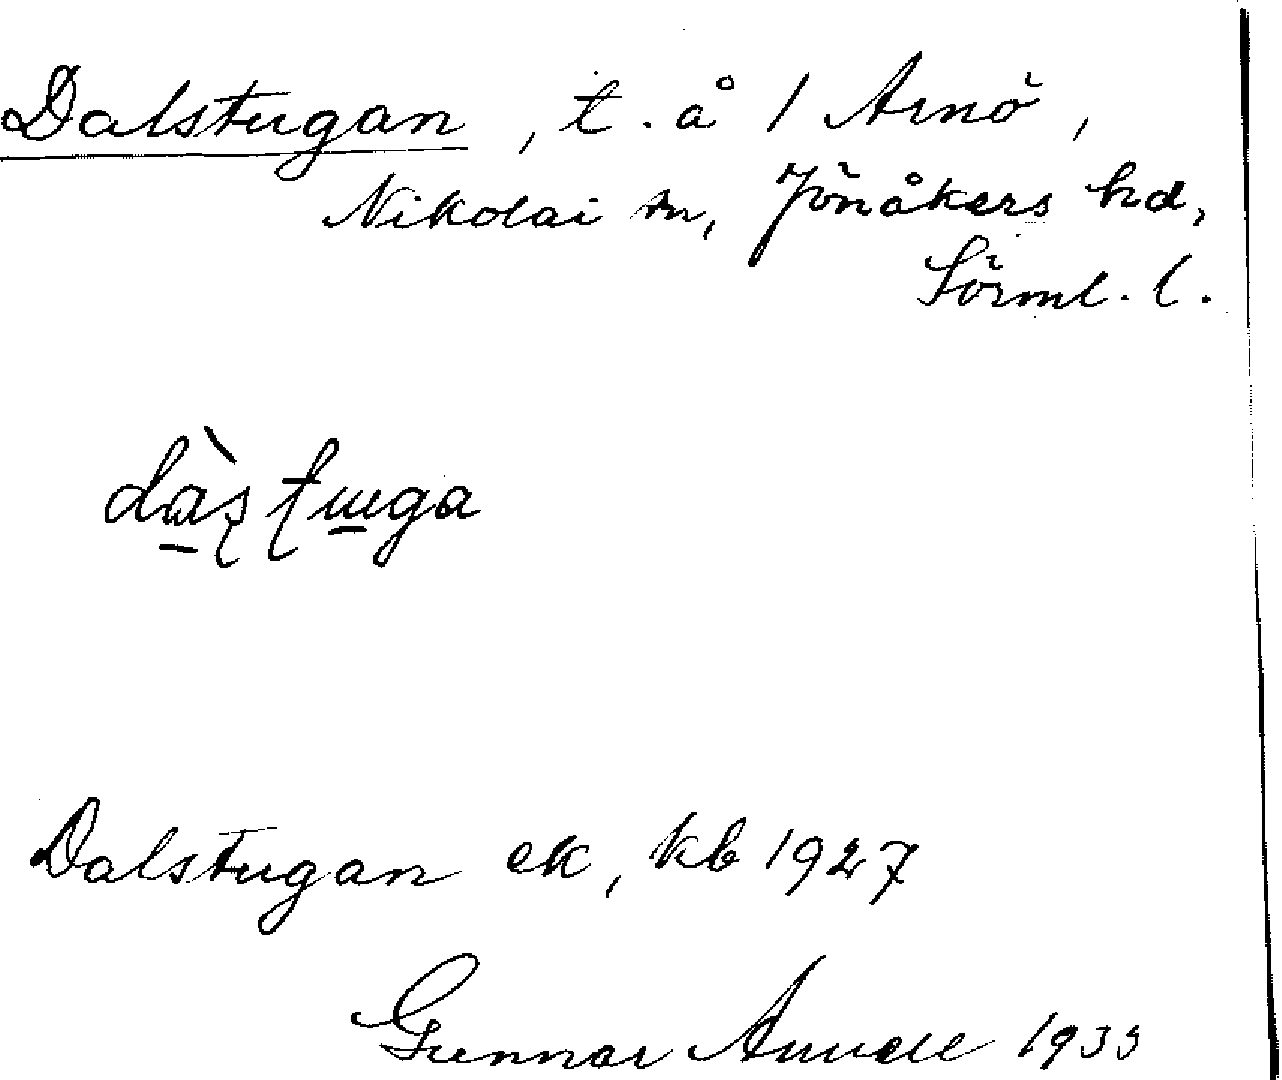 Dalstugan, t. å 1 Arnö,
Nikolai sn, Jönåkers hd,
Sörml. l.
dàstuga
Dalstugan ek, kb 1927
Gunnar 1933